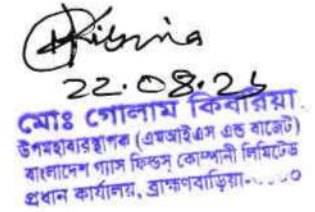 Kibria
22.08.26
মোঃ গোলাম কিবরিয়া
উপমহাব্যবস্থাপক (এমআইএস এন্ড বাজেট)
বাংলাদেশ গ্যাস ফিল্ডস্ কোম্পানী লিমিটেড
প্রধান কার্যালয়, ব্রাহ্মণবাড়িয়া-....০